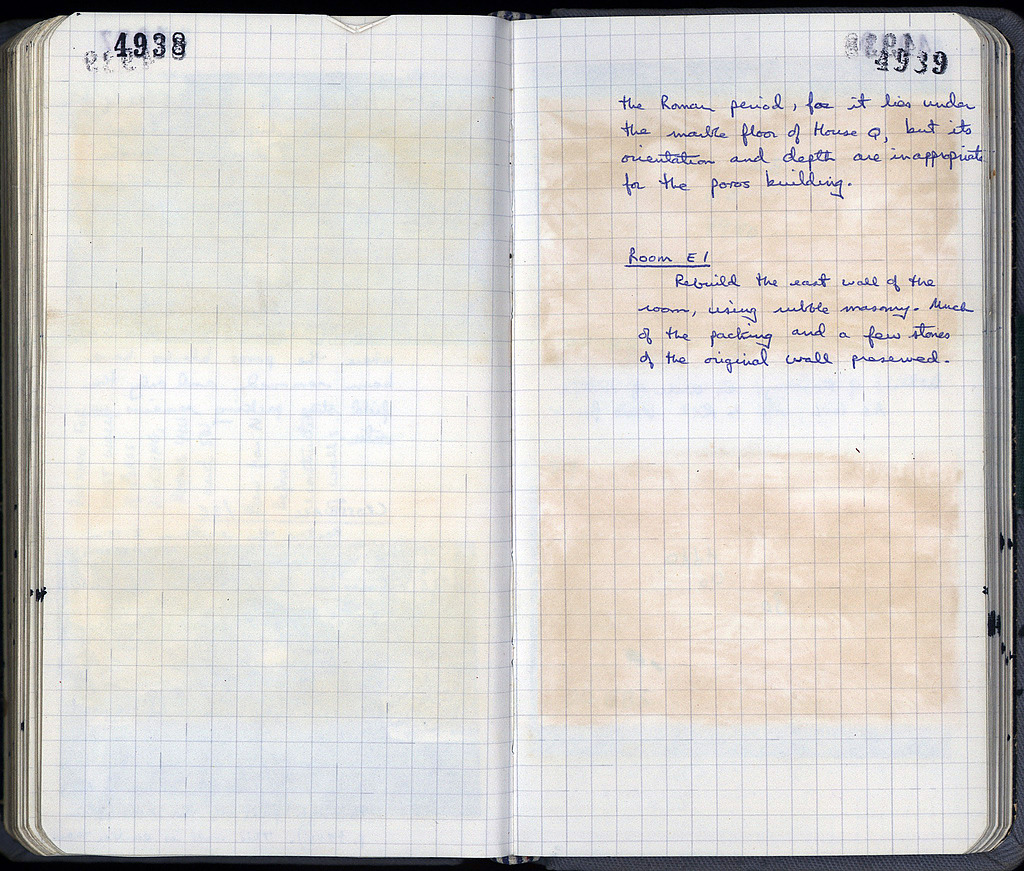 4938
4939
the Roman period, for it lies under
the marble floor of House Q, but its
orientation and depth are inappropriate
for the poros building.
Room E1
Rebuild the east wall of the
room, using rubble masonry. Much
of the packing and a few stones
of the original wall preserved.